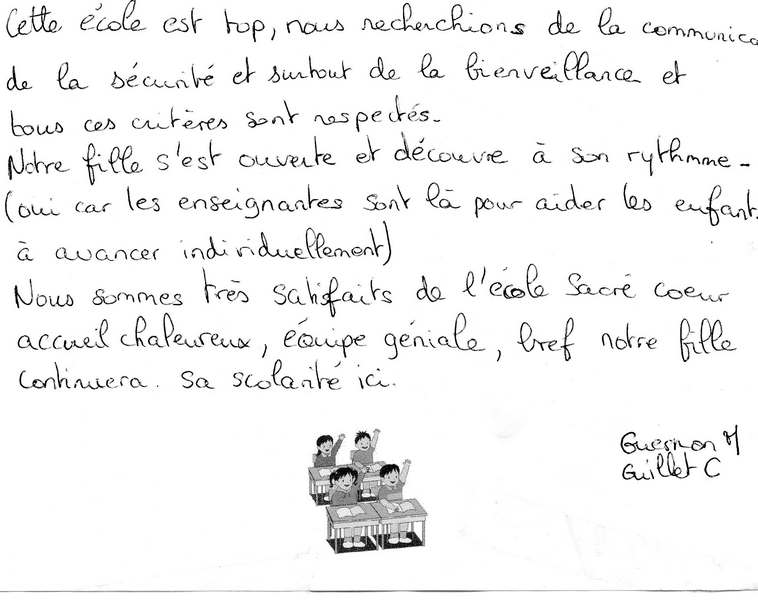 Cette école est top, nous recherchions de la communica
de la sécurité et surtout de la bienveillance et
tous ces critères sont respectés.
Notre fille s'est ouverte et découvre à son rythmme -
(oui car les enseignantes sont là pour aider les enfant
à avancer individuellement)
Nous sommes très satisfaits de l'école Sacré coeur
accueil chaleureux, équipe géniale, bref notre fille
continuera. sa scolarité ici.
Guesnon M
Guillet C